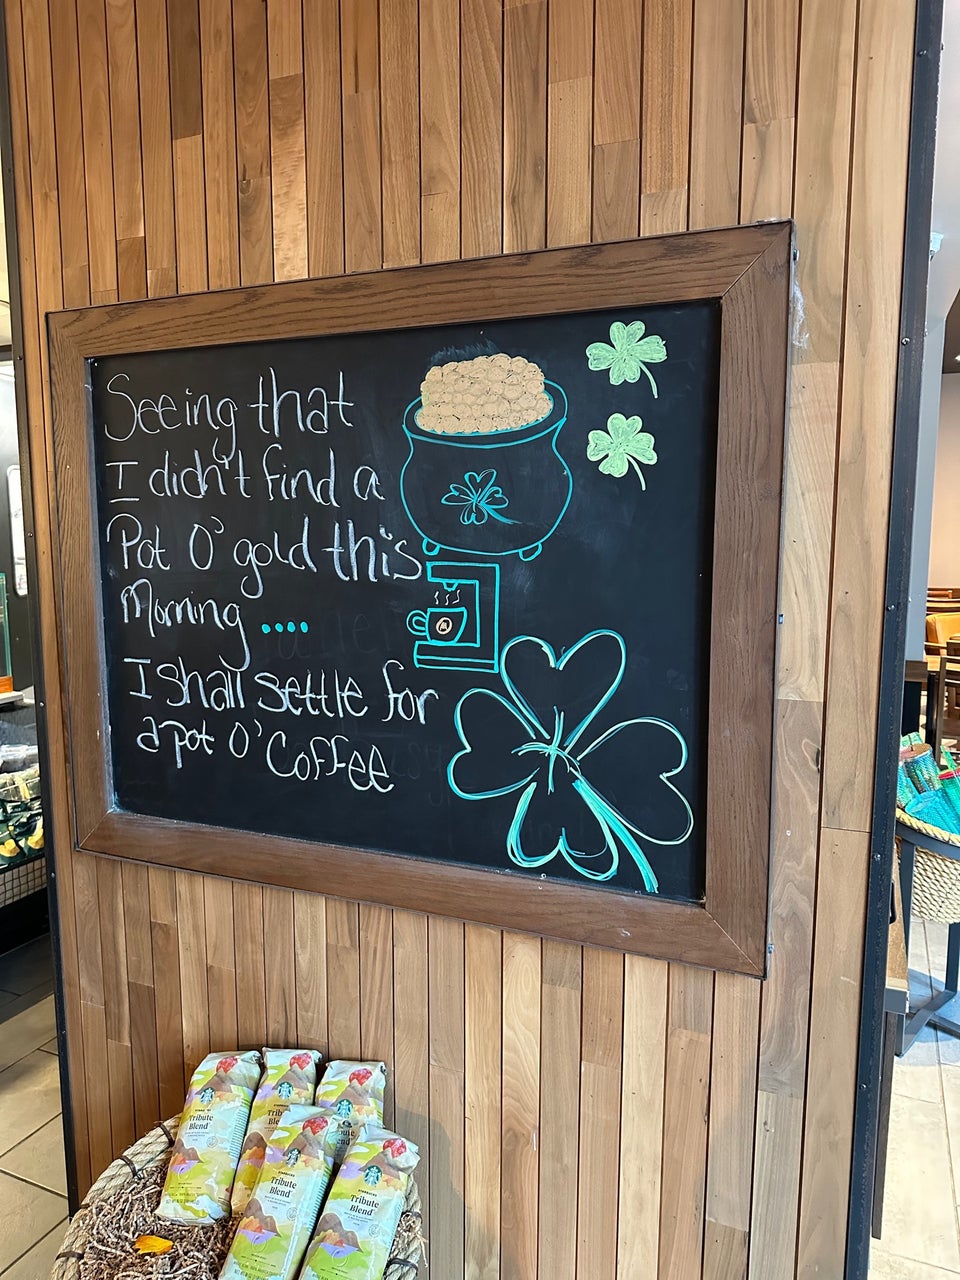 Seeing that
I didn't find a
Pot O' gold this
Morning ....
I shall settle for
a pot O' Coffee
Tribute
Blend
Tribute
Blend
Tribute
Blend